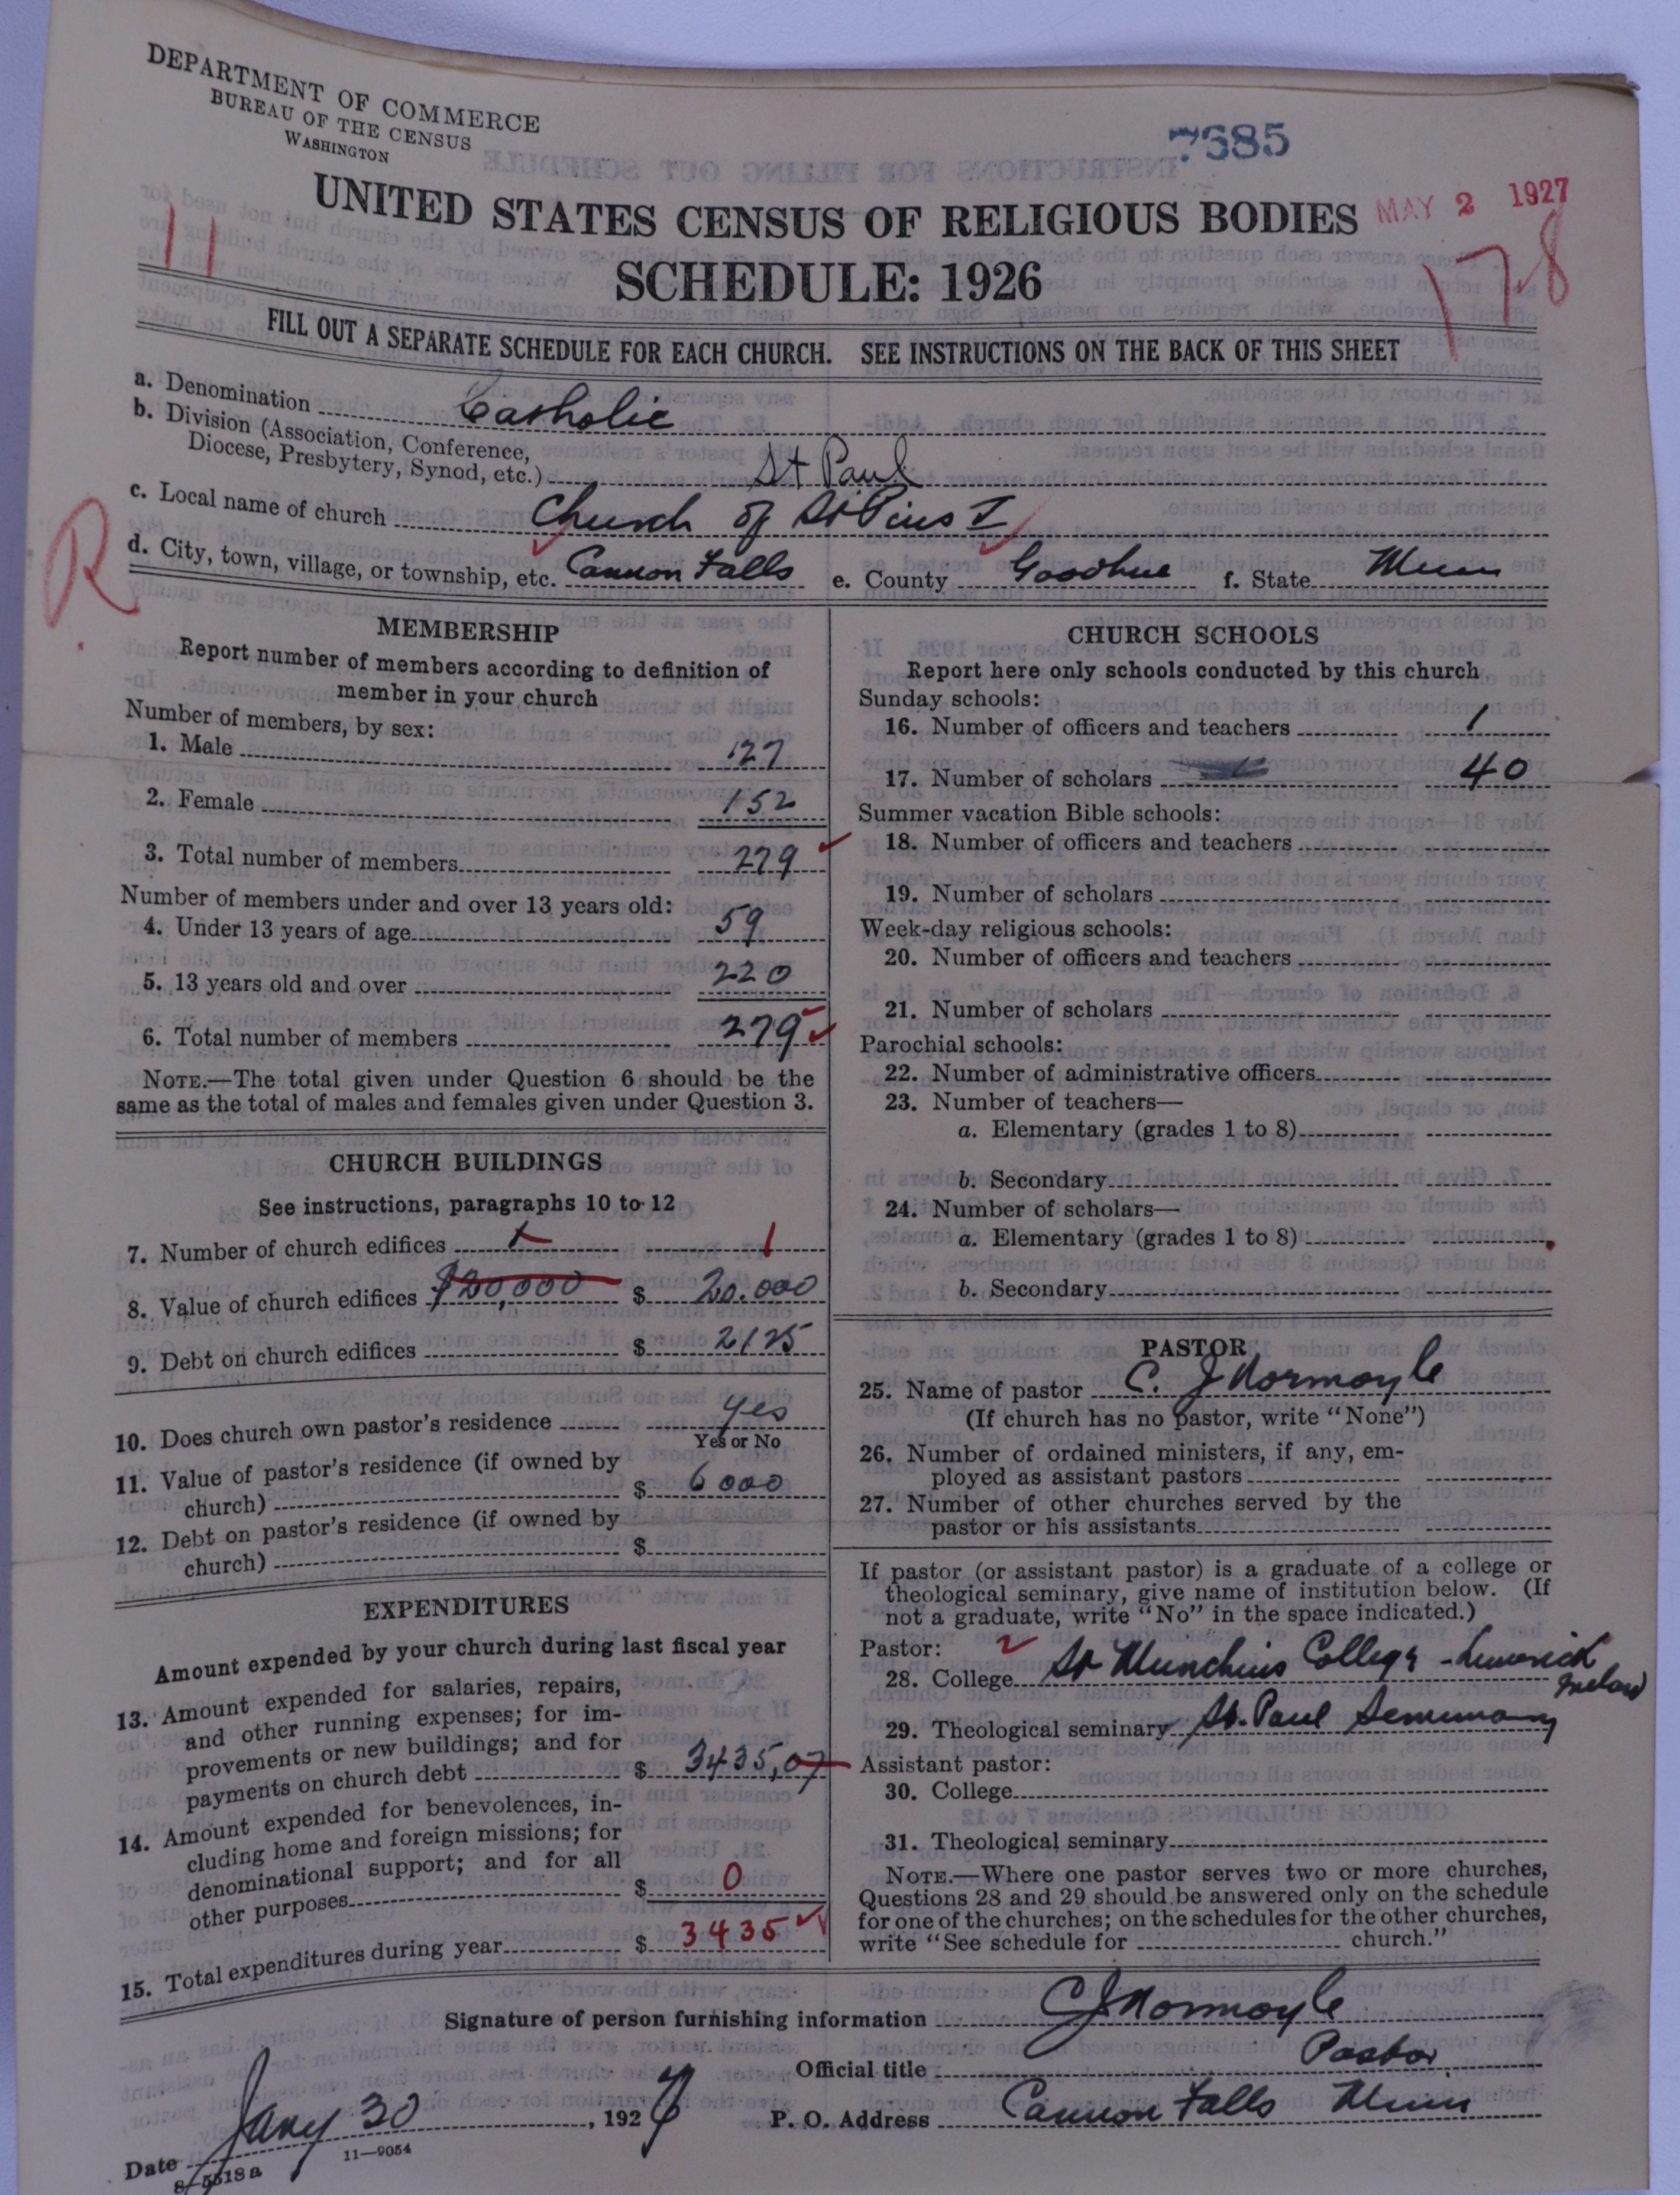 DEPARTMENT OF COMMERCE
BUREAU OF THE CENSUS
WASHINGTON
7685
UNITED STATES CENSUS OF RELIGIOUS BODIES
MAY 2 1927
11
SCHEDULE: 1926
178
FILL OUT A SEPARATE SCHEDULE FOR EACH CHURCH. SEE INSTRUCTIONS ON THE BACK OF THIS SHEET
a. Denomination Catholic
b. Division (Association, Conference,
Diocese, Presbytery, Synod, etc.) St Paul
c. Local name of church Church of St Pius I
R
d. City, town, village, or township, etc. Cannon Falls e. County Goodhue f. State Minn
MEMBERSHIP
Report number of members according to definition of
member in your church
Number of members, by sex:
1. Male 127
2. Female 152
3. Total number of members 279
Number of members under and over 13 years old:
4. Under 13 years of age 59
5. 13 years old and over 220
6. Total number of members 279
NOTE.—The total given under Question 6 should be the
same as the total of males and females given under Question 3.
CHURCH BUILDINGS
See instructions, paragraphs 10 to 12
7. Number of church edifices 1
8. Value of church edifices $20,000 $ 20.000
9. Debt on church edifices $ 2125
10. Does church own pastor's residence yes
Yes or No
11. Value of pastor's residence (if owned by
church) $ 6000
12. Debt on pastor's residence (if owned by
church) $
EXPENDITURES
Amount expended by your church during last fiscal year
13. Amount expended for salaries, repairs,
and other running expenses; for im-
provements or new buildings; and for
payments on church debt $ 3435,07
14. Amount expended for benevolences, in-
cluding home and foreign missions; for
denominational support; and for all
other purposes $ 0
15. Total expenditures during year $ 3435
CHURCH SCHOOLS
Report here only schools conducted by this church
Sunday schools:
16. Number of officers and teachers 1
17. Number of scholars 40
Summer vacation Bible schools:
18. Number of officers and teachers
19. Number of scholars
Week-day religious schools:
20. Number of officers and teachers
21. Number of scholars
Parochial schools:
22. Number of administrative officers
23. Number of teachers—
a. Elementary (grades 1 to 8)
b. Secondary
24. Number of scholars—
a. Elementary (grades 1 to 8)
b. Secondary
PASTOR
25. Name of pastor C. J Normoyle
(If church has no pastor, write "None")
26. Number of ordained ministers, if any, em-
ployed as assistant pastors
27. Number of other churches served by the
pastor or his assistants
If pastor (or assistant pastor) is a graduate of a college or
theological seminary, give name of institution below. (If
not a graduate, write "No" in the space indicated.)
Pastor:
28. College St Munchins College - Limerick
Ireland
29. Theological seminary St. Paul Seminary
Assistant pastor:
30. College
31. Theological seminary
NOTE.—Where one pastor serves two or more churches,
Questions 28 and 29 should be answered only on the schedule
for one of the churches; on the schedules for the other churches,
write "See schedule for church."
Signature of person furnishing information C J Normoyle
Official title Pastor
Date Jany 30, 192
P. O. Address Cannon Falls Minn
8-5518a 11—9054